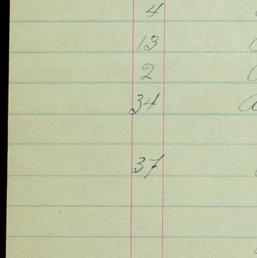 4
13
2
34
37